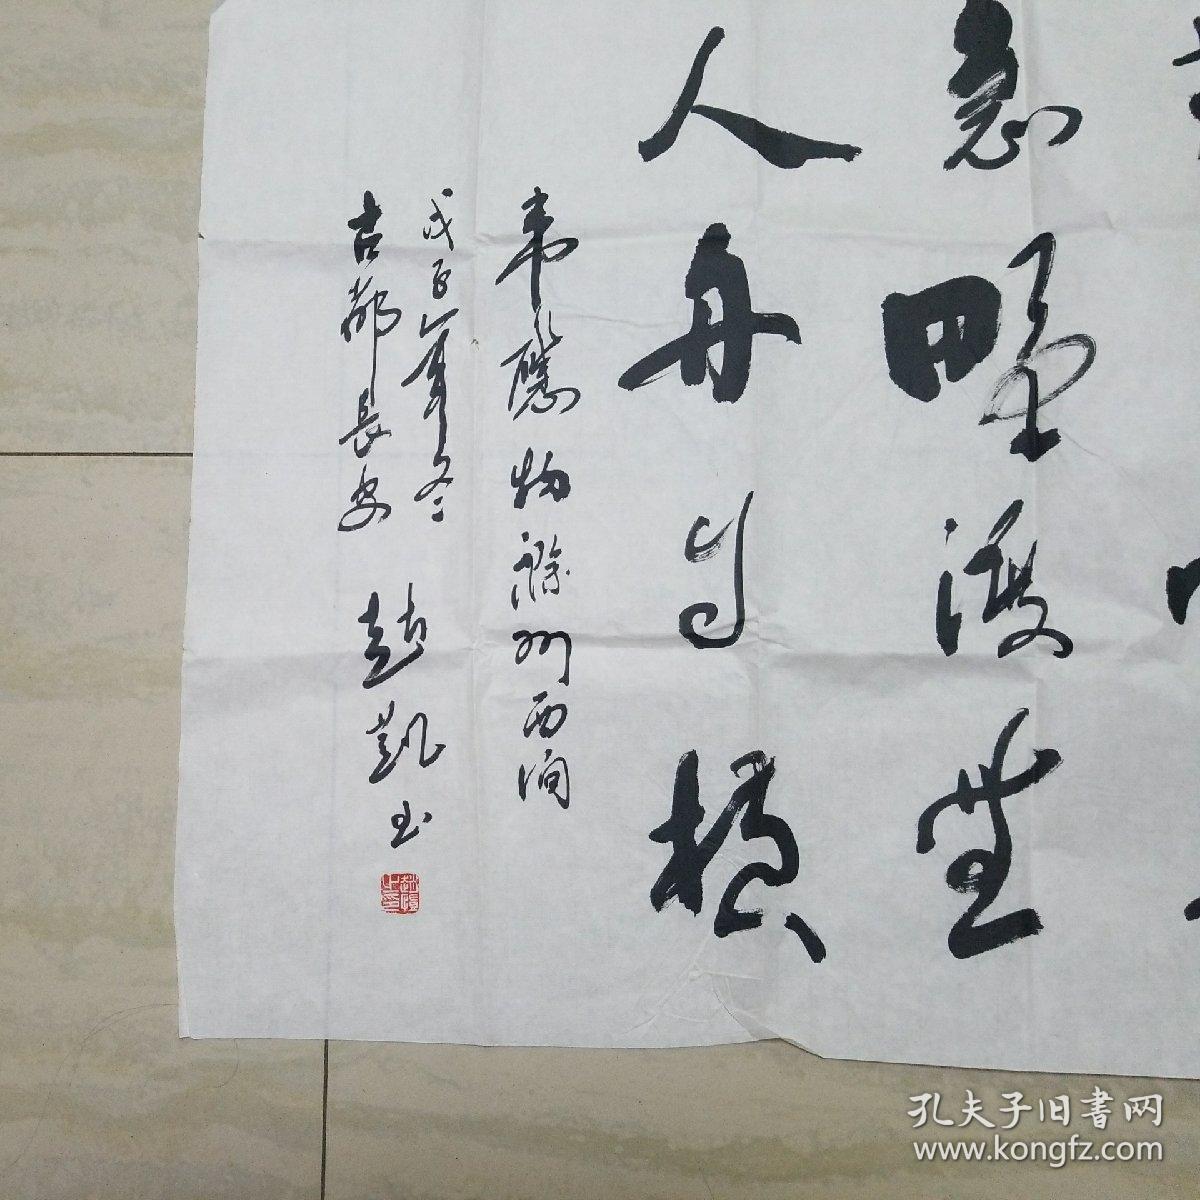 急野渡無
人舟自橫
韦應物滁州西涧
戊子年冬
古都長安 趙凱书
孔夫子旧書网
www.kongfz.com